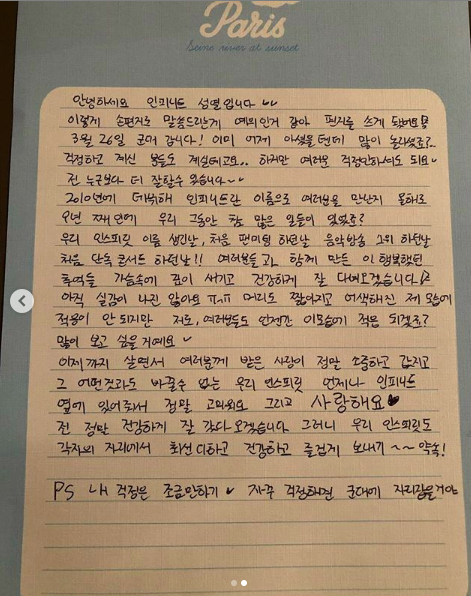 Paris
Seine river at sunset
안녕하세요 인피니트 성열입니다
이렇게 손편지로 말씀드리는게 예의인거 같아 편지를 쓰게 됐어요
3월 26일 군대 갑니다! 이미 어제 아셨을텐데 많이 놀라셨죠?
걱정하고 계신 분들도 계실테고요.. 하지만 여러분 걱정안하셔도 되요
전 누구보다 더 잘할수 있습니다~
2010년에 데뷔해 인피니트란 이름으로 여러분을 만난지 올해로
9년 째인데 우리 그동안 참 많은 일들이 있었죠?
우리 인스피릿 이름 생긴날, 처음 팬미팅 하던날 음악방송 1위 하던날
처음 단독 콘서트 하던날!! 여러분들과 함께 만든 이 행복했던
추억들 가슴속에 깊이 새기고 건강하게 잘 다녀오겠습니다
아직 실감이 나진 않아요 ㅠㅠ 머리도 짧아지고 어색해진 제 모습에
적응이 안 되지만 저도, 여러분들도 언젠간 이모습에 적응 되겠죠?
많이 보고 싶을 거예요
이제까지 살면서 여러분께 받은 사랑이 정말 소중하고 값지고
그 어떤것과도 바꿀수 없는 우리 인스피릿 언제나 인피니트
옆에 있어줘서 정말 고마워요 그리고 사랑해요♥
전 정말 건강하게 잘 갔다 오겠습니다 그러니 우리 인스피릿도
각자의 자리에서 최선 다하고 건강하고 즐겁게 보내기~~ 약속!
PS 내 걱정은 조금만하기 자꾸 걱정하면 군대에 자리잡을거야